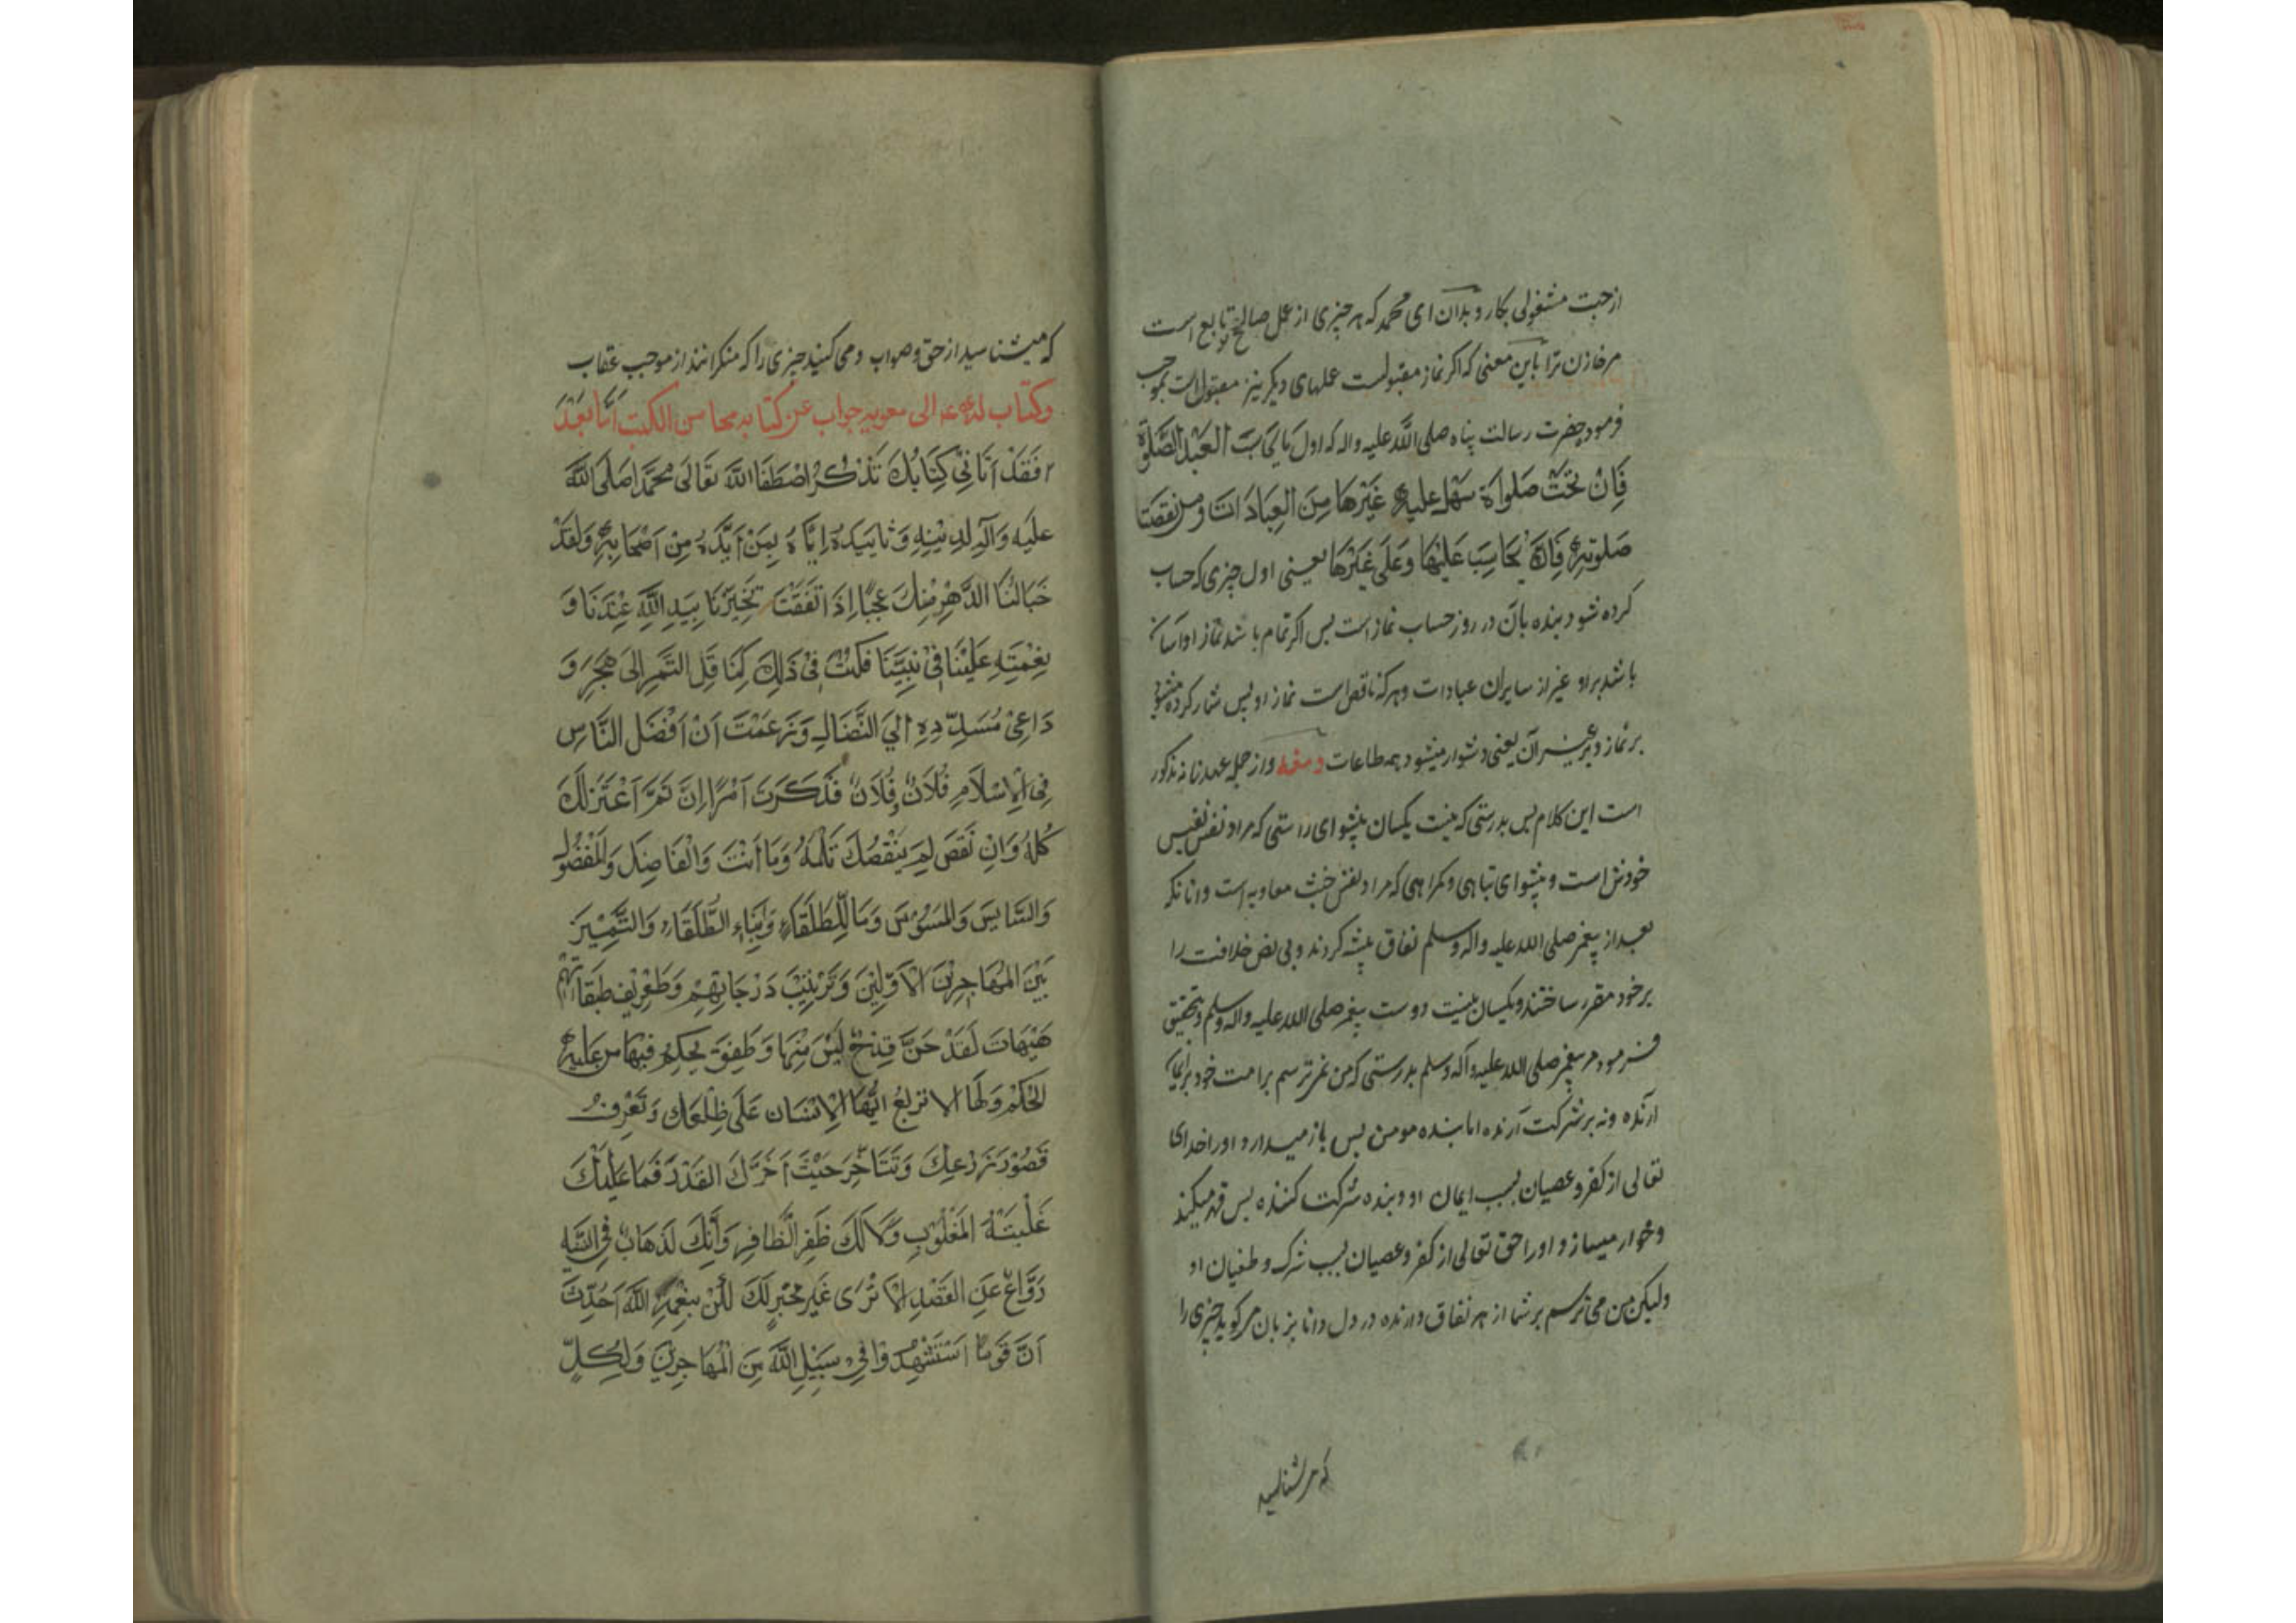 از جهت مشغولی بکار و بدان ای محمد که هر چیزی از عمل صالح تو تابع است
مر نماز ترا باین معنی که اکر نماز مقبولست عملهای دیکر نیز مقبول است بموجب
فرموده حضرت رسالت پناه صلی الله علیه واله که اول مَا یُحَاسَبُ العَبْدُ الصَّلَوة
فَاِنْ تَمَّتْ صَلَواة سَهَل علیه غَیْرُهَا مِنَ العِبَادَات وَمَنْ نَقَصَت
صَلوتهُ فَاِنَّهُ یُحَاسَبَ عَلَیْهَا وَعَلَی غَیْرِهَا یعنی اول چیزی که حساب
کرده شود بنده بآن در روز حساب نماز است پس اکر تمام باشد نماز او آسان
باشد بر او غیر از سایران عبادات و هرکه ناقص است نماز او پس شمار کرده میشود
بر نماز و بر غیر آن یعنی دشوار میشود همه طاعات ومنه و از جمله عهدنامه مذکور
است این کلام پس بدرستی که نیست یکسان پیشوای راستی که مراد نفس نفیس
خودش است و پیشوای تباهی و کمراهی که مراد نفس خبیث معاویه است و انانکه
بعد از پیغمبر صلی الله علیه واله وسلم نفاق پیشه کردند و بی نص خلافت را
بر خود مقرر ساختند و یکسان نیست دوست پیغمبر صلی الله علیه واله وسلم و بتحقیق
فرمود مر پیغمبر صلی الله علیه و آله وسلم بدرستی که من نمی ترسم بر امت خود بر ایمان
آرنده و نه بر شرکت آرنده اما بنده مومن پس باز میدارد او را خدای
تعالی از کفر و عصیان بسبب ایمان او و بنده شرکت کننده پس قهر میکند
و خوار میسازد او را حق تعالی از کفر و عصیان بسبب شرک و طغیان او
ولیکن من می ترسم بر شما از هر نفاق دارنده در دل دانا بزبان می کوید چیزی را
که می شناسید
که میشناسید از حق و صواب و می کنید چیزی را که منکرانند از موجب عقاب
وکتاب له ع الی معویه جواب عن کتابه محاسن الکتب اَمّا بَعْدَ
فَقَدْ اَتَانِیْ کِتَابُكَ تَذْکُرُ اصْطِفَا اللهَ تَعَالَی مُحَمَّداً صَلَی اللهُ
عَلَیْه وَآلِهِ لِدِیْنِهِ وَتَاییَدَهُ اِیَّاهُ بِمَنْ اَیَّدَهُ مِنْ اَصْحَابِهِ وَلَقَدْ
خَبَا لَنَا الدَّهْرِ مْنِكَ عَجَبًا اِذَ اتَفَقْتَ تَخْیِرْنَا بِیَدِ اللهِ عِنْدَنَا وَ
نِعْمَتِهِ عَلَیْنَا فِیْ نَبِیِّنَا فَکُنْتَ فِیْ ذَلِكَ کَنَا قِلِ التَّمِرِ اِلَی هَجَرِ وَ
دَاعِیْ مُسَدِّدِهِ اِلَیَ النِّضَالِ وَزَعَمْتَ اَنَ اَفْضَلَ النَّاسِ
فِی الاِسْلَامِ فُلَانٌ وفُلَانٌ فَذَکَرْتَ اَمْرًا اِنَّ تَمَّ اَعْتَزَلَكَ
کُلُهُ وَاِنِ نَقَصَ لَمِ یَنْقُصْكَ ثَلْمَهُ وَمَا اَنْتَ وَالفَاضِلَ وَالمَفْضُولَ
وَالسَّایِسَ وَالمَسَوُسَ وَمَا لِلطُلَقَاءِ وَاَبْنَاءِ الطُّلَقَاءِ وَالتَّمِیْیَزَ
بَیْنَ المُهَاجِرِیْنَ الاَوَّلِیْنَ وَتَرْتِیْبَ دَرَجَاتِهِمْ وَتَعْرِیْفِ طَبَقَاتِهِمْ
هَیْهَاتَ لَقَدْ حَنَّ قِدْحٌ لَیْسَ مِنْهَا وَطَفِقَ یَحْکِمُ فِیْهَا مَن عَلَیْهِ
الحُکْمُ وَلَهَا الا تربَعُ اَیُّهَا الاِنْسَان عَلَی ظِلْعِكَ وَتَعْرِفُ
قَصُوْرَ ذَرْعِكَ وَتَتَاَخَّرَ حَیْثَ اَخَّرَكَ القَدْرَ فَمَا عَلَیْكَ
غَلَبَتَهُ المَغْلُوْبِ وَلَا لَكَ ظَفِرَ الظَّافِرِ وَاَنِّكَ لَذَهَابٌ فِی التَّیِهِ
رَوَّاغٌ عَنِ القَصْدِ الاَ تَرَی غَیْرَ مُخْبِرٍ لَكَ لَکُنْ بِنِعْمَةِ اللهَ اَحَدِّثَ
اَنَّ قَومًا اسْتَشْهِدُوْا فِیْ سَبِیْلِ اللهِ مِنَ الْمُهَاجِرِیْنَ وَلِکُلٍّ